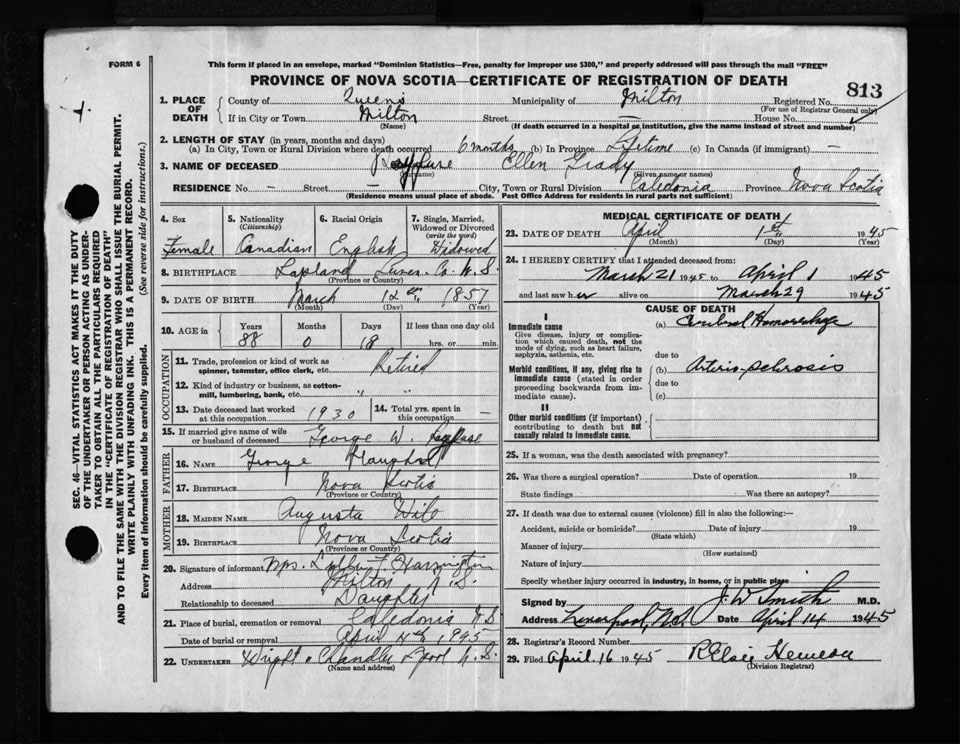 FORM 6
This form if placed in an envelope, marked "Dominion Statistics—Free, penalty for improper use $300," and properly addressed will pass through the mail "FREE"
PROVINCE OF NOVA SCOTIA—CERTIFICATE OF REGISTRATION OF DEATH
813
1. PLACE OF DEATH County of Queens Municipality of Milton Registered No.
(For use of Registrar General only)
If in City or Town Milton Street — House No.
(Name) (If death occurred in a hospital or institution, give the name instead of street and number)
2. LENGTH OF STAY (in years, months and days)
(a) In City, Town or Rural Division where death occurred 6 months (b) In Province Lifetime (c) In Canada (if immigrant) —
3. NAME OF DECEASED Ellen Grady
(Surname) (Given name or names)
RESIDENCE No. — Street — City, Town or Rural Division Caledonia Province Nova Scotia
(Residence means usual place of abode. Post Office Address for residents in rural parts not sufficient)
4. Sex Female
5. Nationality (Citizenship) Canadian
6. Racial Origin English
7. Single, Married, Widowed or Divorced (write the word) Widowed
8. BIRTHPLACE Lapland Lunen. Co. N.S.
(Province or Country)
9. DATE OF BIRTH March 12 1857
(Month) (Day) (Year)
10. AGE in Years Months Days If less than one day old
88 0 18 hrs. or min.
OCCUPATION
11. Trade, profession or kind of work as spinner, teamster, office clerk, etc. Retired
12. Kind of industry or business, as cotton-mill, lumbering, bank, etc. "
13. Date deceased last worked at this occupation 1930 14. Total yrs. spent in this occupation —
15. If married give name of wife or husband of deceased George W.
FATHER
16. NAME George
17. BIRTHPLACE Nova Scotia
(Province or Country)
MOTHER
18. MAIDEN NAME Augusta Wile
19. BIRTHPLACE Nova Scotia
(Province or Country)
20. Signature of informant Mrs. F. Harrington
Address Milton N.S.
Relationship to deceased Daughter
21. Place of burial, cremation or removal Caledonia N.S.
Date of burial or removal April 4th
22. UNDERTAKER Wright & Chandler L'pool N.S.
(Name and address)
MEDICAL CERTIFICATE OF DEATH
23. DATE OF DEATH April 1st 1945
(Month) (Day) (Year)
24. I HEREBY CERTIFY that I attended deceased from:
March 21 1945 to April 1 1945
and last saw her alive on March 29 1945
CAUSE OF DEATH
I
Immediate cause (a) Cerebral Hemorrhage
Give disease, injury or complication which caused death, not the mode of dying, such as heart failure, asphyxia, asthenia, etc.
due to
Morbid conditions, if any, giving rise to immediate cause (stated in order proceeding backwards from immediate cause). (b) Arterio-sclerosis
due to
(c)
II
Other morbid conditions (if important) contributing to death but not causally related to immediate cause.
25. If a woman, was the death associated with pregnancy?
26. Was there a surgical operation? Date of operation 19
State findings Was there an autopsy?
27. If death was due to external causes (violence) fill in also the following:—
Accident, suicide or homicide? Date of injury 19
(State which)
Manner of injury
(How sustained)
Nature of injury
Specify whether injury occurred in industry, in home, or in public place
Signed by J. W. Smith M.D.
Address Liverpool, N.S. Date April 14 1945
28. Registrar's Record Number
29. Filed April 16 1945
(Division Registrar)
SEC. 46—VITAL STATISTICS ACT MAKES IT THE DUTY
OF THE UNDERTAKER OR PERSON ACTING AS UNDER-
TAKER TO OBTAIN ALL THE PARTICULARS REQUIRED
IN THE "CERTIFICATE OF REGISTRATION OF DEATH"
AND TO FILE THE SAME WITH THE DIVISION REGISTRAR WHO SHALL ISSUE THE BURIAL PERMIT.
WRITE PLAINLY WITH UNFADING INK. THIS IS A PERMANENT RECORD.
Every item of information should be carefully supplied. (See reverse side for instructions.)